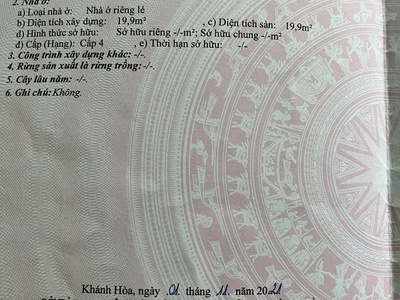 2. Nhà ở:
a) Loại nhà ở: Nhà ở riêng lẻ
b) Diện tích xây dựng: 19,9m² , c) Diện tích sàn: 19,9m²
d) Hình thức sở hữu: Sở hữu riêng -/-m²; Sở hữu chung -/-m²
đ) Cấp (Hạng): Cấp 4 , e) Thời hạn sở hữu: -/-
3. Công trình xây dựng khác: -/-
4. Rừng sản xuất là rừng trồng: -/-
5. Cây lâu năm: -/-
6. Ghi chú: Không.
Khánh Hòa, ngày 01 tháng 11 năm 2021